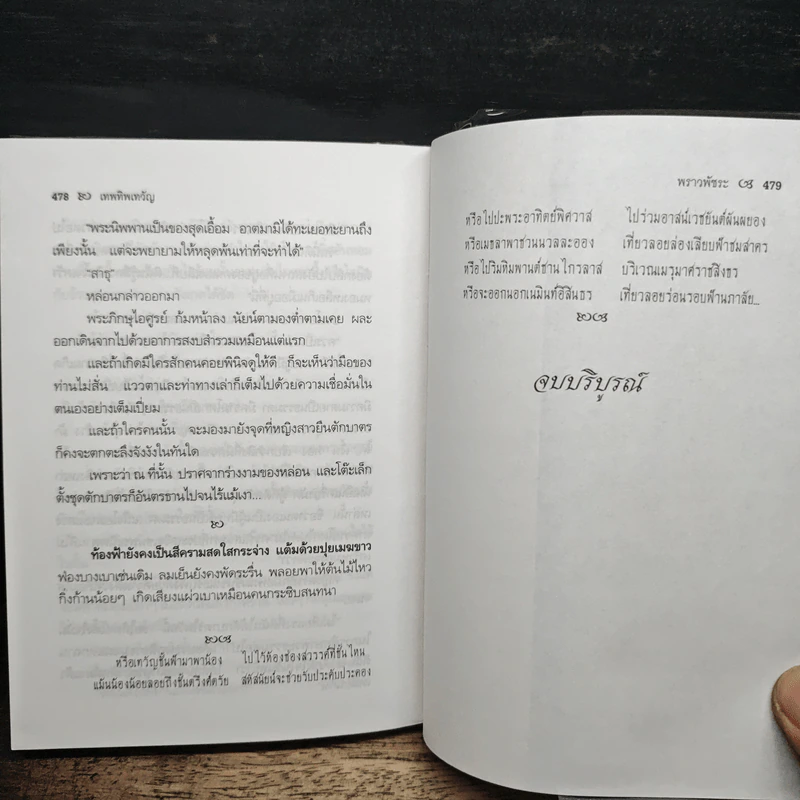 478 เทพทิพเทวัญ
"พระนิพพานเป็นของสุดเอื้อม อาตมามิได้ทะเยอทะยานถึง
เพียงนั้น แต่จะพยายามให้หลุดพ้นเท่าที่จะทำได้"
"สาธุ"
หล่อนกล่าวออกมา
พระภิกษุไอศูรย์ ก้มหน้าลง นัยน์ตามองต่ำตามเคย ผละ
ออกเดินจากไปด้วยอาการสงบสำรวมเหมือนแต่แรก
และถ้าเกิดมีใครสักคนคอยพินิจดูให้ดี ก็จะเห็นว่ามือของ
ท่านไม่สั่น แววตาและท่าทางเล่าก็เต็มไปด้วยความเชื่อมั่นใน
ตนเองอย่างเต็มเปี่ยม
และถ้าใครคนนั้น จะมองมายังจุดที่หญิงสาวยืนตักบาตร
ก็คงจะตกตะลึงจังงังในทันใด
เพราะว่า ณ ที่นั้น ปราศจากร่างงามของหล่อน และโต๊ะเล็ก
ตั้งชุดตักบาตรก็อันตรธานไปจนไร้แม้เงา...
ท้องฟ้ายังคงเป็นสีครามสดใสกระจ่าง แต้มด้วยปุยเมฆขาว
ฟ่องบางเบาเช่นเดิม ลมเย็นยังคงพัดระรื่น พลอยพาให้ต้นไม้ไหว
กิ่งก้านน้อยๆ เกิดเสียงแผ่วเบาเหมือนคนกระซิบสนทนา
หรือเทวัญชั้นฟ้ามาพาน้อง ไปไว้ห้องช่องสวรรค์ที่ชั้นไหน
แม้นน้องน้อยลอยถึงชั้นตรึงศ์ตรัย สหัสนัยน์จะช่วยรับประคับประคอง
พราวพัชระ 479
หรือไปปะพระอาทิตย์พิศวาส ไปร่วมอาสน์เวชยันต์ผันผยอง
หรือเมขลาพาชวนนวลละออง เที่ยวลอยล่องเลียบฟ้าชมสาคร
หรือไปริมหิมพานต์ชานไกรลาส บริเวณเมรุมาศราชสิงขร
หรือจะออกนอกเนมินท์อิสินธร เที่ยวลอยร่อนรอบฟ้านภาลัย...
จบบริบูรณ์